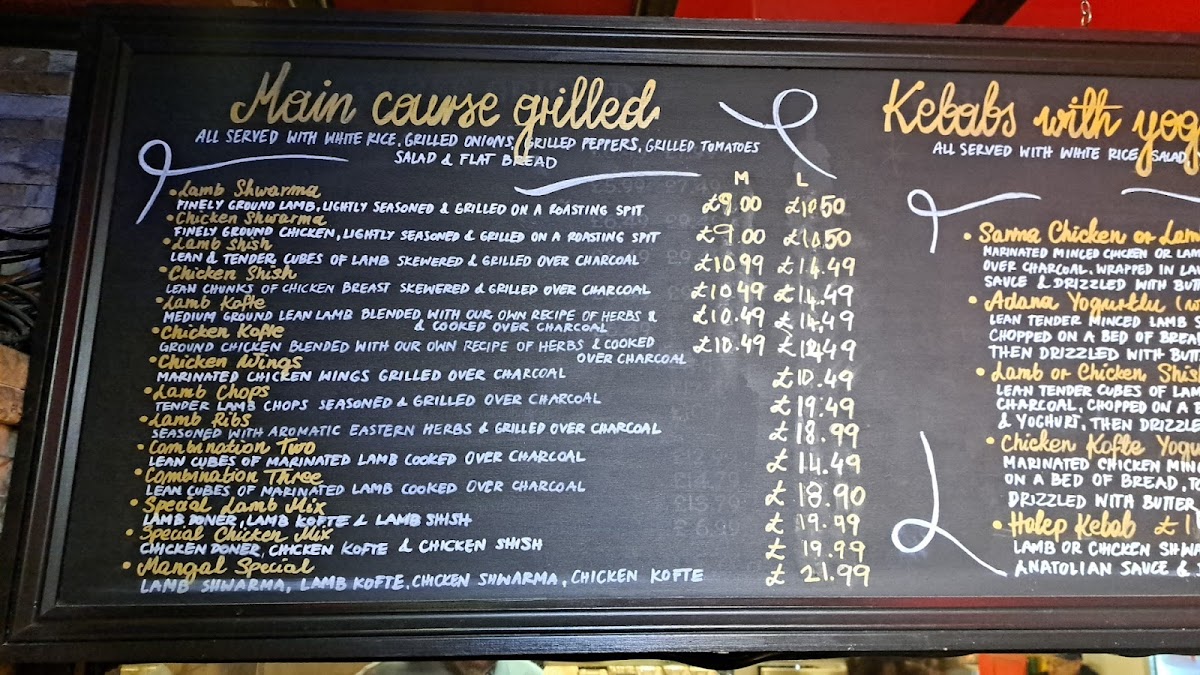 Main course grilled
ALL SERVED WITH WHITE RICE, GRILLED ONIONS, GRILLED PEPPERS, GRILLED TOMATOES
SALAD & FLAT BREAD
M L
• Lamb Shwarma
FINELY GROUND LAMB, LIGHTLY SEASONED & GRILLED ON A ROASTING SPIT £9.00 £10.50
• Chicken Shwarma
FINELY GROUND CHICKEN, LIGHTLY SEASONED & GRILLED ON A ROASTING SPIT £9.00 £10.50
• Lamb Shish
LEAN & TENDER CUBES OF LAMB SKEWERED & GRILLED OVER CHARCOAL £10.99 £14.49
• Chicken Shish
LEAN CHUNKS OF CHICKEN BREAST SKEWERED & GRILLED OVER CHARCOAL £10.49 £14.49
• Lamb Kofte
MEDIUM GROUND LEAN LAMB BLENDED WITH OUR OWN RECIPE OF HERBS & £10.49 £14.49
& COOKED OVER CHARCOAL
• Chicken Kofte
GROUND CHICKEN BLENDED WITH OUR OWN RECIPE OF HERBS & COOKED £10.49 £14.49
OVER CHARCOAL
• Chicken Wings
MARINATED CHICKEN WINGS GRILLED OVER CHARCOAL £10.49
• Lamb Chops
TENDER LAMB CHOPS SEASONED & GRILLED OVER CHARCOAL £19.49
• Lamb Ribs
SEASONED WITH AROMATIC EASTERN HERBS & GRILLED OVER CHARCOAL £18.99
• Combination Two
LEAN CUBES OF MARINATED LAMB COOKED OVER CHARCOAL £14.49
• Combination Three
LEAN CUBES OF MARINATED LAMB COOKED OVER CHARCOAL £18.90
• Special Lamb Mix
LAMB DONER, LAMB KOFTE & LAMB SHISH £19.99
• Special Chicken Mix
CHICKEN DONER, CHICKEN KOFTE & CHICKEN SHISH £19.99
• Mangal Special
LAMB SHWARMA, LAMB KOFTE, CHICKEN SHWARMA, CHICKEN KOFTE £21.99
Kebabs with yog
ALL SERVED WITH WHITE RICE SALAD
• Sarma Chicken or Lam
MARINATED MINCED CHICKEN OR LAM
OVER CHARCOAL, WRAPPED IN LA
SAUCE & DRIZZLED WITH BUT
• Adana Yogurtlu
LEAN TENDER MINCED LAMB S
CHOPPED ON A BED OF BREA
THEN DRIZZLED WITH BUTT
• Lamb or Chicken Shish
LEAN TENDER CUBES OF LAM
CHARCOAL, CHOPPED ON A
& YOGHURT, THEN DRIZZLE
• Chicken Kofte Yogu
MARINATED CHICKEN MIN
ON A BED OF BREAD, TO
DRIZZLED WITH BUTTER
• Halep Kebab £1
LAMB OR CHICKEN SHWA
ANATOLIAN SAUCE &